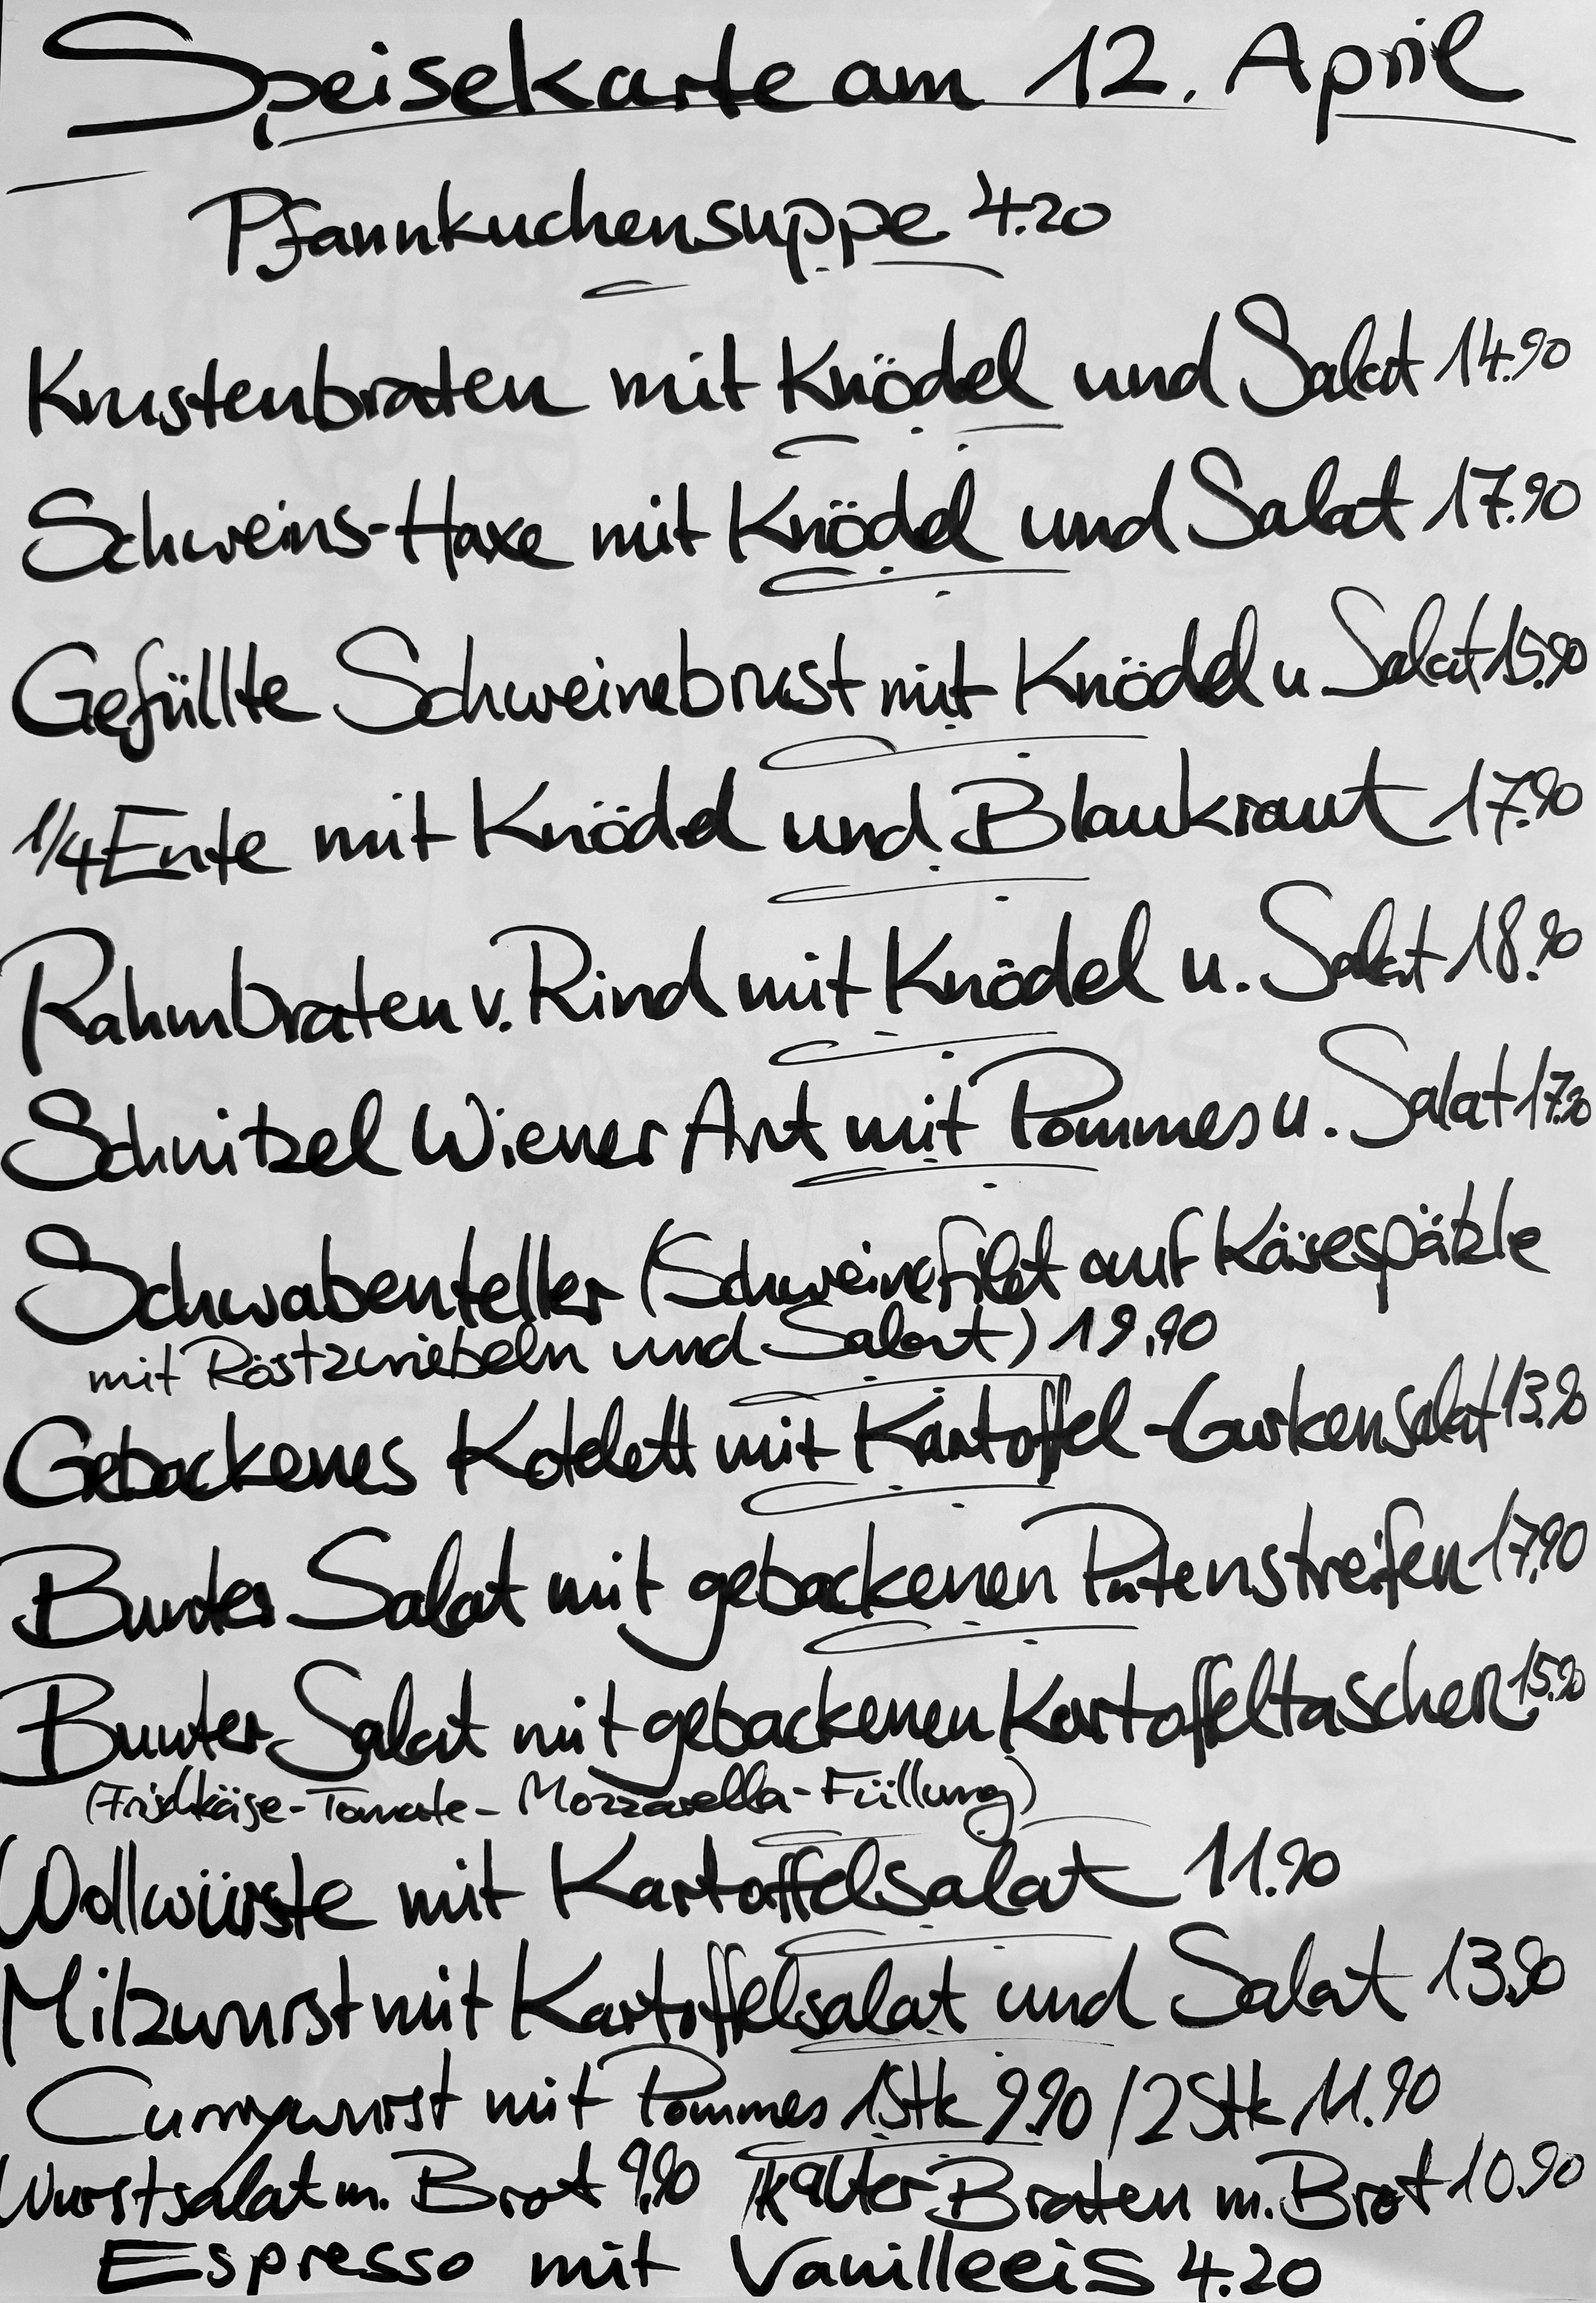 Speisekarte am 12. April
Pfannkuchensuppe 4.20
Krustenbraten mit Knödel und Salat 14.90
Schweins-Haxe mit Knödel und Salat 17.90
Gefüllte Schweinebrust mit Knödel u Salat 15.90
1/4 Ente mit Knödel und Blaukraut 17.90
Rahmbraten v. Rind mit Knödel u. Salat 18.90
Schnitzel Wiener Art mit Pommes u. Salat 17.90
Schwabenteller (Schweinefilet auf Käsespätzle
mit Röstzwiebeln und Salat) 19.90
Gebackenes Kotelett mit Kartoffel-Gurkensalat 13.90
Bunter Salat mit gebackenen Putenstreifen 17.90
Bunter Salat mit gebackenen Kartoffeltaschen 15.90
(Frischkäse-Tomate-Mozzarella-Füllung)
Wollwürste mit Kartoffelsalat 11.90
Milzwurst mit Kartoffelsalat und Salat 13.90
Currywurst mit Pommes 1Stk 9.90 / 2 Stk 11.90
Wurstsalat m. Brot 9.90 / kalter Braten m. Brot 10.90
Espresso mit Vanilleeis 4.20